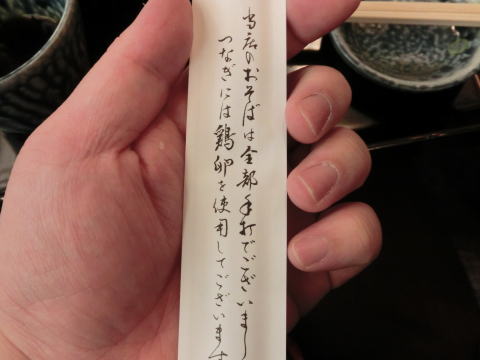 当店のおそばは全部手打でございまし
つなぎには鶏卵を使用してございます